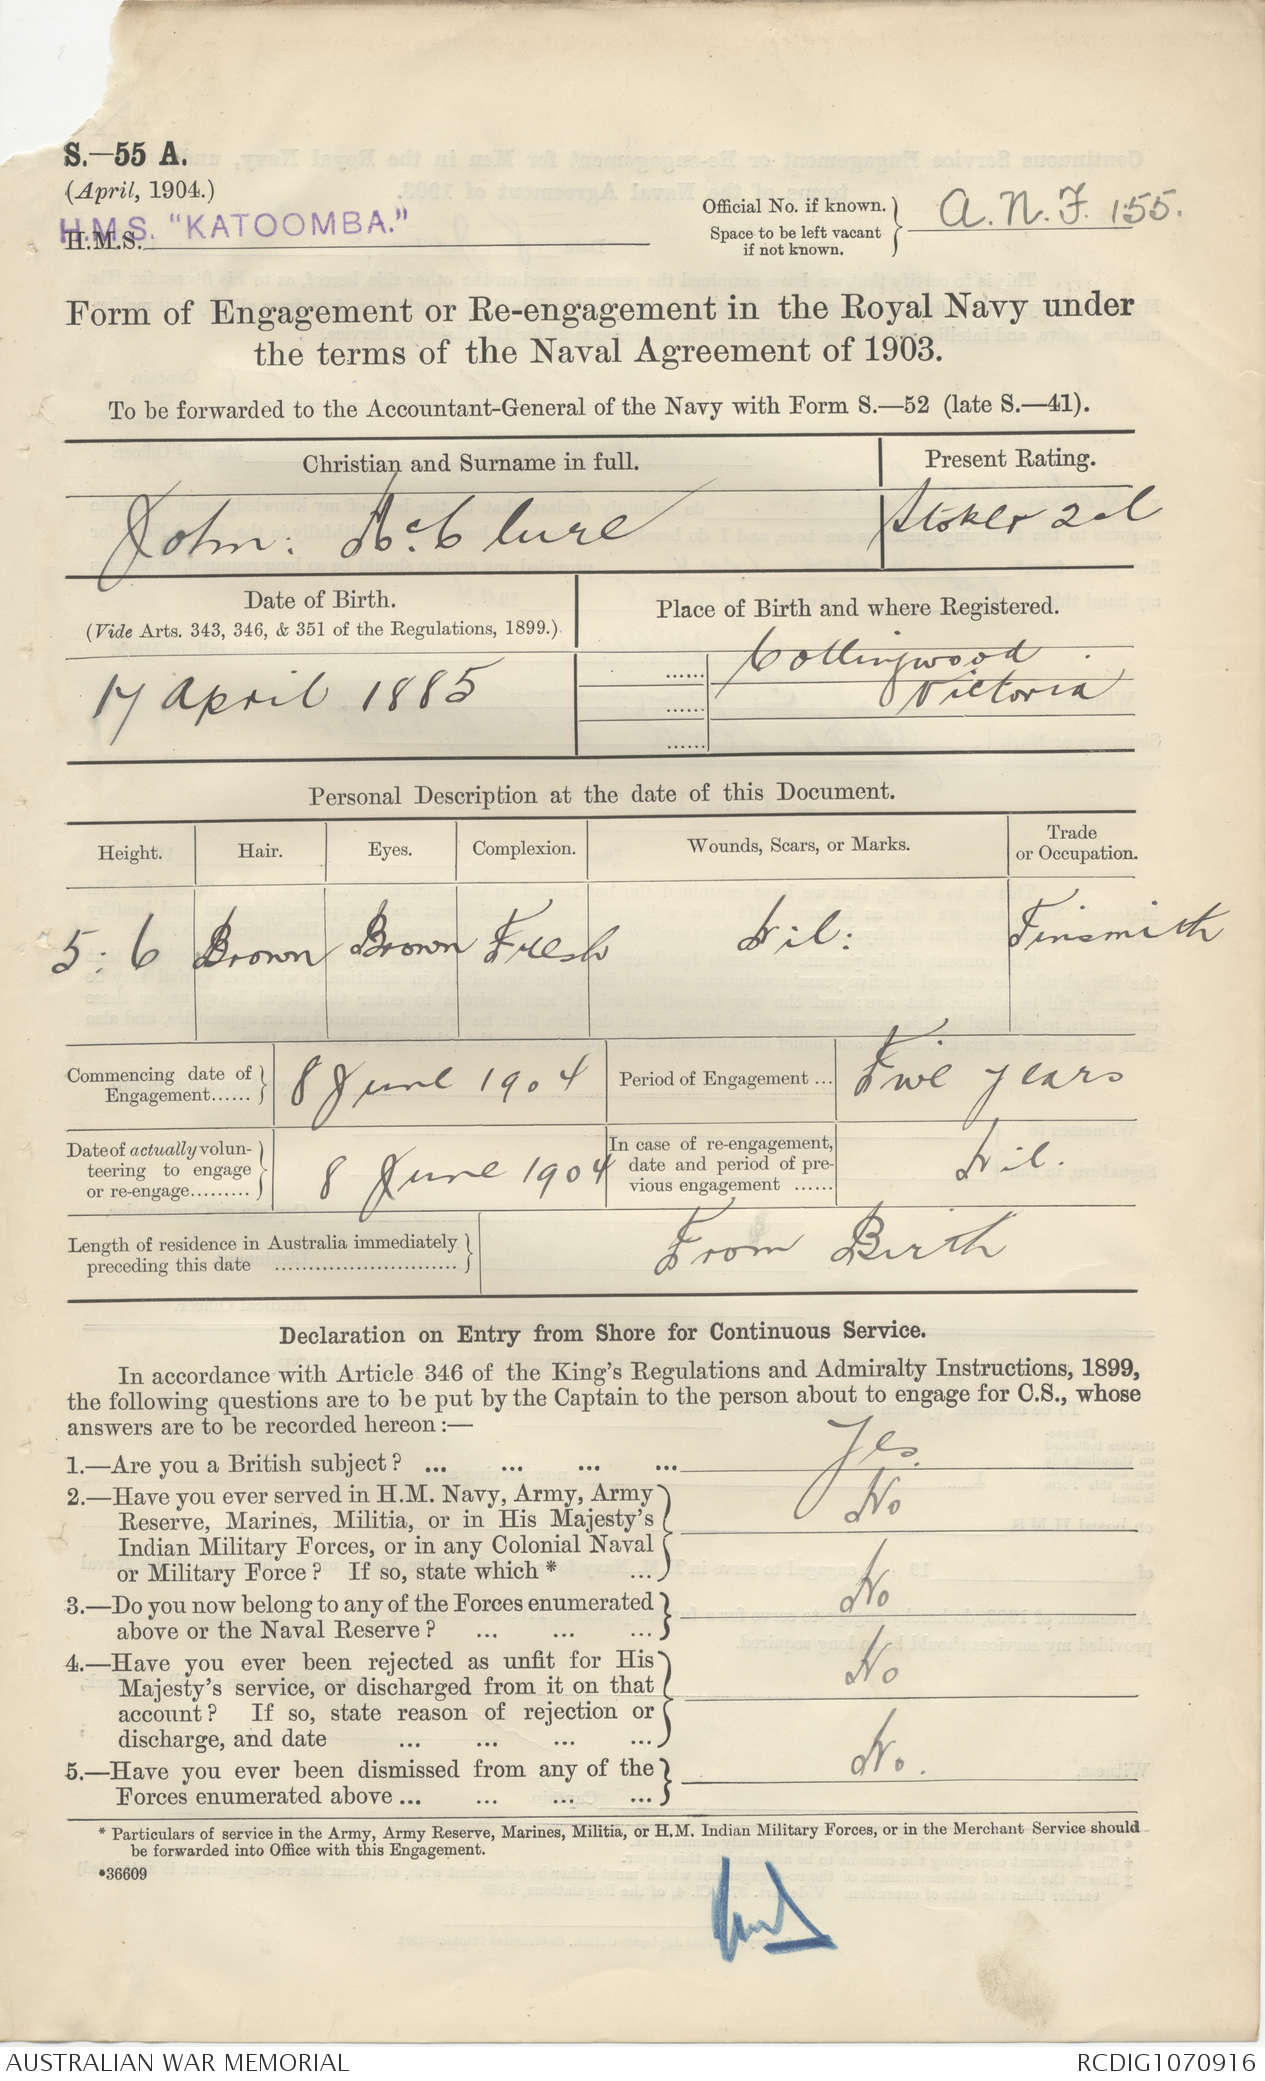 S.—55 A.
(April, 1904.)
H.M.S. "KATOOMBA."
H.M.S.
Official No. if known.
Space to be left vacant
if not known.
A.N.F. 155.
Form of Engagement or Re-engagement in the Royal Navy under
the terms of the Naval Agreement of 1903.
To be forwarded to the Accountant-General of the Navy with Form S.—52 (late S.—41).
Christian and Surname in full.
Present Rating.
John: McClure
Stoker 2cl
Date of Birth.
(Vide Arts. 343, 346, & 351 of the Regulations, 1899.)
Place of Birth and where Registered.
17 April 1885
Collingwood
Victoria
Personal Description at the date of this Document.
Height. Hair. Eyes. Complexion. Wounds, Scars, or Marks. Trade
or Occupation.
5:6 Brown Brown Fresh Nil: Tinsmith
Commencing date of
Engagement......
8 June 1904
Period of Engagement ...
Five years
Date of actually volun-
teering to engage
or re-engage.........
8 June 1904
In case of re-engagement,
date and period of pre-
vious engagement ......
Nil.
Length of residence in Australia immediately
preceding this date ...........................
From Birth
Declaration on Entry from Shore for Continuous Service.
In accordance with Article 346 of the King's Regulations and Admiralty Instructions, 1899,
the following questions are to be put by the Captain to the person about to engage for C.S., whose
answers are to be recorded hereon:—
1.—Are you a British subject? ... ... ... ...
Yes.
2.—Have you ever served in H.M. Navy, Army, Army
Reserve, Marines, Militia, or in His Majesty's
Indian Military Forces, or in any Colonial Naval
or Military Force? If so, state which * ...
No
3.—Do you now belong to any of the Forces enumerated
above or the Naval Reserve? ... ... ...
No
4.—Have you ever been rejected as unfit for His
Majesty's service, or discharged from it on that
account? If so, state reason of rejection or
discharge, and date ... ... ... ...
No
5.—Have you ever been dismissed from any of the
Forces enumerated above ... ... ... ...
No.
* Particulars of service in the Army, Army Reserve, Marines, Militia, or H.M. Indian Military Forces, or in the Merchant Service should
be forwarded into Office with this Engagement.
*36609
AUSTRALIAN WAR MEMORIAL
RCDIG1070916